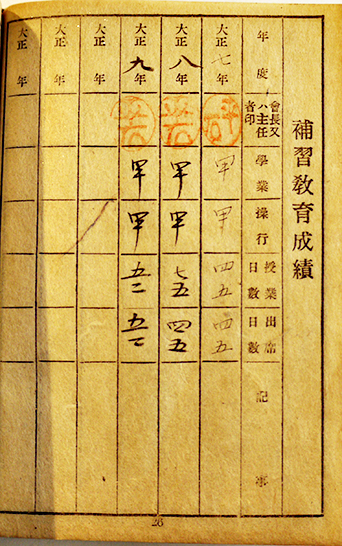 補習教育成績
年度
會長又ハ主任者印
學業
操行
授業日數
出席日數
記事
大正七年
甲
甲
四五
四五
大正八年
甲
甲
七五
四五
大正九年
甲
甲
大正 年
大正 年
大正 年
26